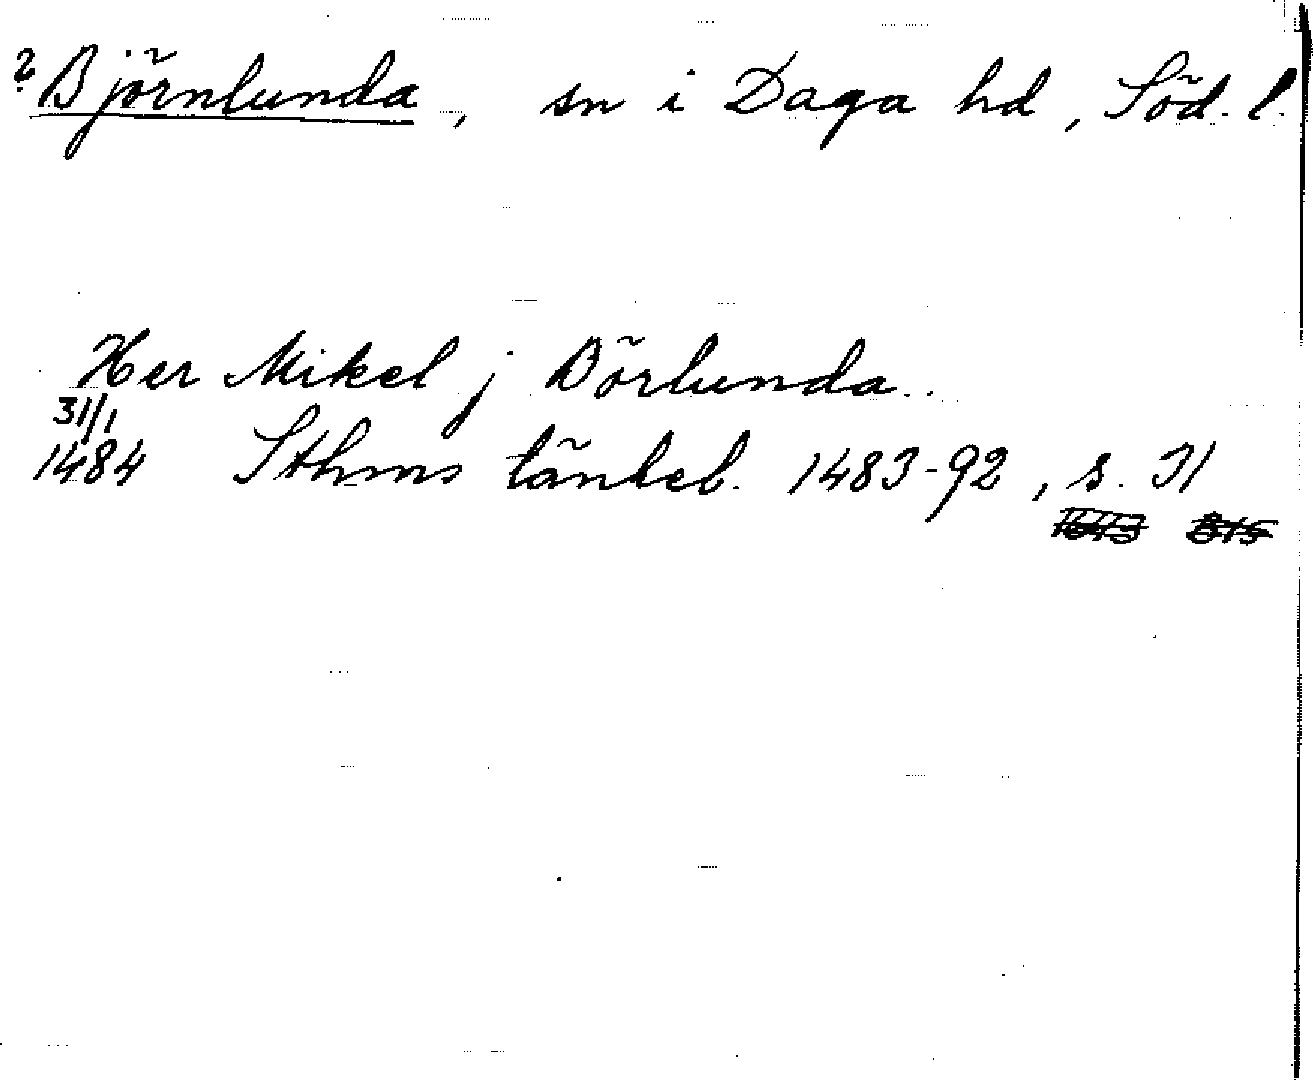 ? Björnlunda, sn i Daga hd, Söd. l.
Her Mikel j Börlunda.
31/1
1484 Sthms tänkeb. 1483-92, s. 31